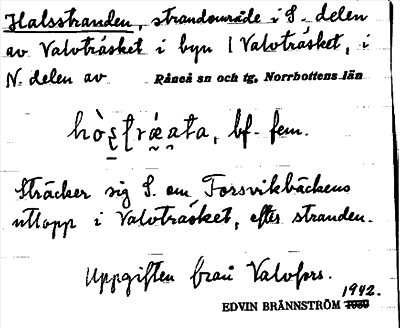 Halsstranden, strandområde i S. delen
av Valvträsket i byn 1 Valvträsket, i
N. delen av Råneå sn och tg, Norrbottens län
bf. fem.
Sträcker sig S. om Forsvikbäckens
utlopp i Valvträsket, efter stranden.
Uppgiften från Valvfors.
1942.
EDVIN BRÄNNSTRÖM 1939